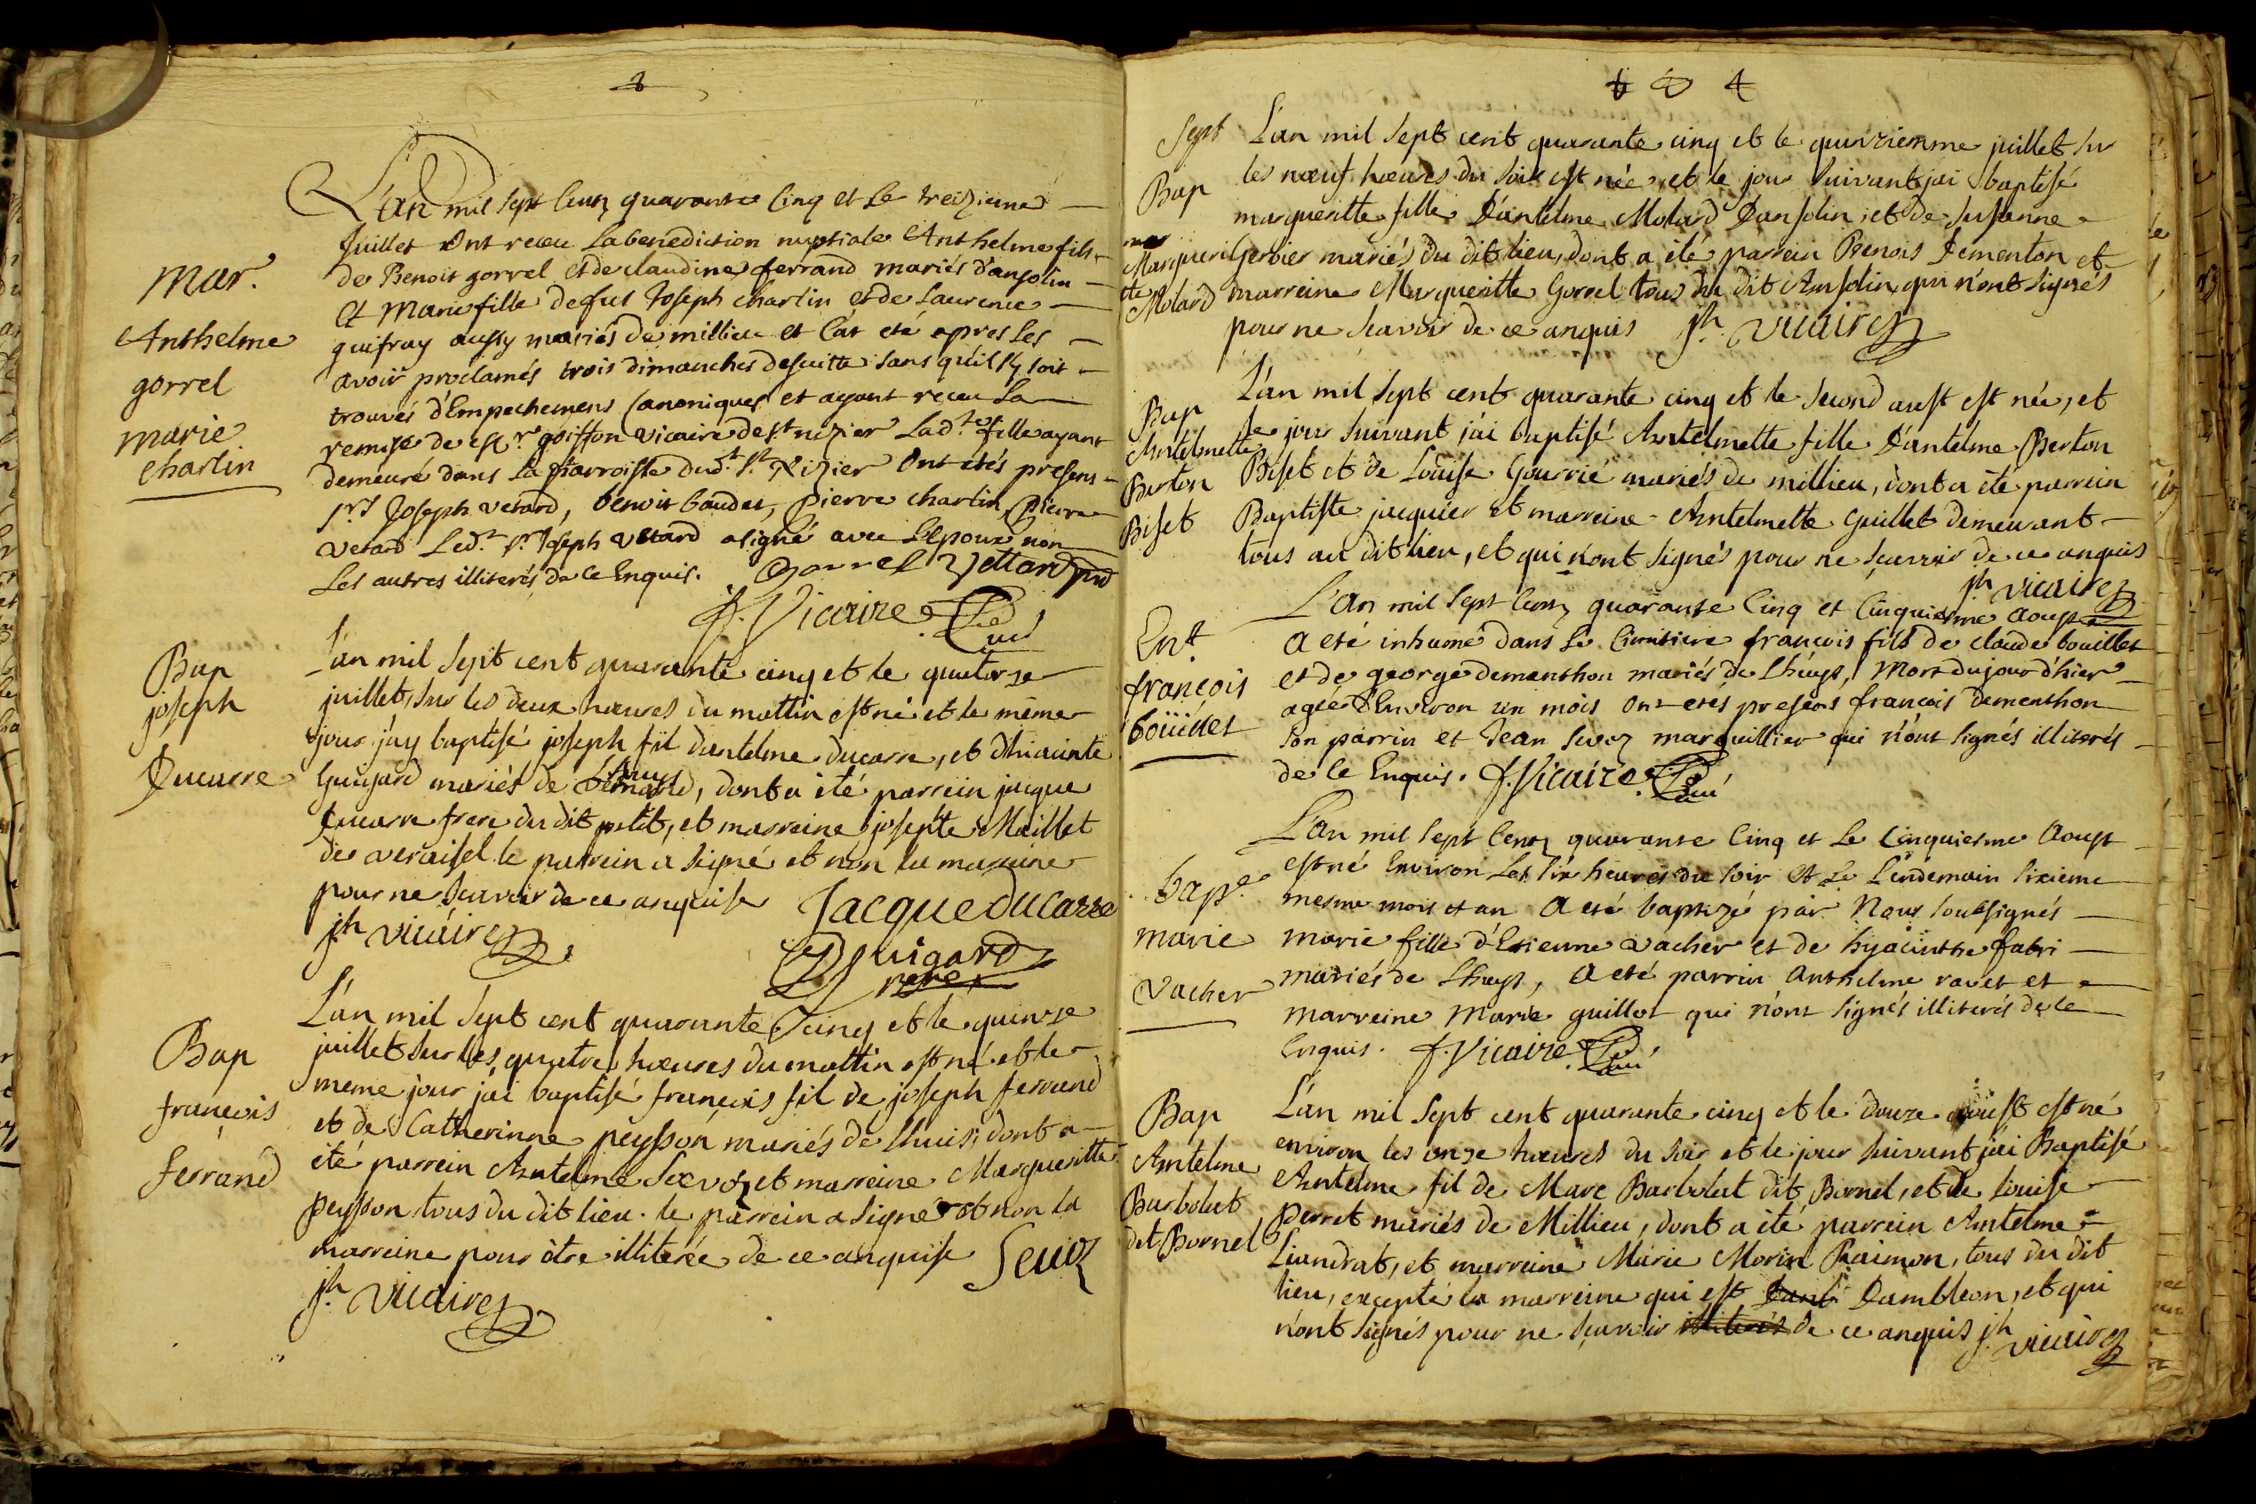 Mar.
Anthelme
gorrel
marie
charlin
L'an mil sept Cents quarante Cinq et Le treizieme
Juillet Ont receu La benediction nuptiale Anthelme fils
de Benoit gorrel et de claudine ferrand mariés d'ansolin
et Marie fille de feus Joseph Charlin et de Laurence
guifray aussy mariés de millieu et Cat eté apres Les
avoir proclamés trois dimanches desuitte sans quil sy soit
trouvés d'Empechemens Canoniques et ayant receu La
remise de Goiffon vicaire de st nizier Lad.te fille ayant
demeuré dans La parroisse dud.t st Nizier Ont etés presens
srs Joseph vetard, benoit baudet, pierre charlin, pierre
vetard Led.t sr Joseph vetard a signé avec L'Epoux non
Les autres illiterés de Ce Enquis. Gorrel Vettard
f. Vicaire Curé
Bap
joseph
Ducarre
L'an mil sept cent quarante cinq et le quatorze
juillet, sur les deux hœures du mattin est né et le même
jour j'ay baptisé joseph fil dantelme ducarre, et d'hiacinte
Guigard mariés de , dont a été parrein jacque
Ducarre frere du dit petit, et marreine josepte Maillet
de le parrein a signé et non la marreine
pour ne scavoir de ce anquise Jacque du Carre
jh vicaire
Guigard
Bap
françois
ferrand
L'an mil sept cent quarante cinq et le quinze
juillet sur les quatre hœures du mattin est né et le
meme jour jai baptisé françois fil de joseph ferrand
et de Catherinne peysson mariés de Lhuis, dont a
été parrein Antelme Sevoz et marreine Margueritte
peysson tous du dit lieu. le parrein a signé et non la
marreine pour être illiterée de ce anquise Sevoz
jh vicaire
4
Sept
Bap
Margueri
tte
Molard
L'an mil sept cent quarante cinq et le quinzienme juillet sur
les nœuf hœures du soir est née et le jour suivant jai baptisé
margueritte fille D'antelme Molard D'ansolin, et de Susanne
Gerbier mariés du dit lieu, dont a été parrein Benois Dementon et
marreine Margueritte Gorrel tous du dit Ansolin, qui n'ont signés
pour ne scavoir de ce anquis jh vicaire
Bap
Antelmette
Berton
Biset
L'an mil sept cent quarante cinq et le second aust est née, et
le jour suivant j'ai baptisé Antelmette fille D'antelme Berton
Biset et de Louise Gourrié mariés de millieu, dont a été parrein
Baptiste jacquier et marreine Antelmette Guillet demeurant
tous au dit lieu, et qui n'ont signés pour ne scavoir de ce anquis
jh vicaire
Ent
françois
boüillet
L'an mil sept Cents quarante Cinq et Cinquiesme Aoust
a eté inhumé dans Le Cimitiere francois fils de claude bouillet
et de george dementhon mariés de Lhuys, Mort du jour d'hier
agée d'Environ un mois Ont etés presens francois dementhon
son parrin et Jean Sevoz marguillier qui n'ont signés illiterés
de Ce Enquis. f. Vicaire Curé
bap.e
marie
vacher
L'an mil sept Cents quarante Cinq et Le Cinquiesme Aoust
est né Environ Les six heures du soir et Le L'endemain sixieme
mesme mois et an a eté baptizé par Nous soubsignés
marie fille d'Etienne vacher et de hyacinthe fabri
mariés de Lhuys, a eté parrin anthelme ravet et
marreine Marie guillot qui n'ont signés illiterés de Ce
Enquis. f. Vicaire Curé
Bap
Antelme
Barbolat
dit Bornel
L'an mil sept cent quarante cinq et le douze aoust est né
environ les onze hœures du soir et le jour suivant jai Baptisé
Antelme fil de Marc Barbolat dit Bornel, et de Louise
perret mariés de Millieu, dont a été parrein Antelme
Liandrat, et marreine Marie Morin Raimon, tous du dit
lieu, excepté la marreine qui est Dambléon, et qui
n'ont signés pour ne scavoir de ce anquis jh vicaire